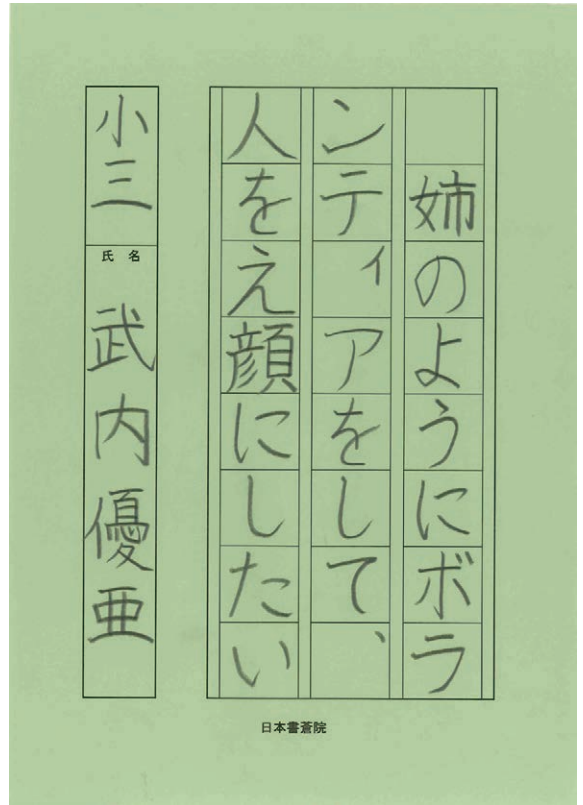 姉のようにボラ
ンティアをして、
人をえ顔にしたい
小三
氏名
武内優亜
日本書蒼院